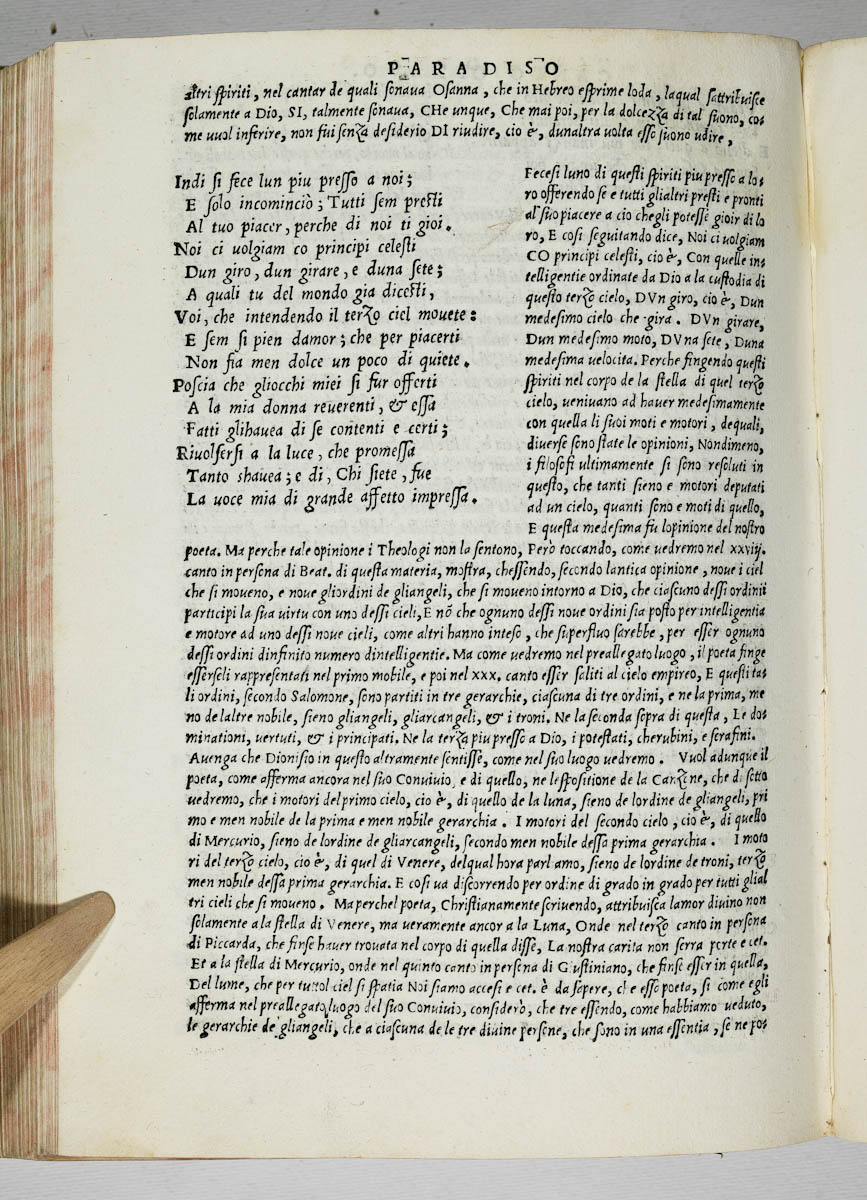 PARADISO
altri spiriti, nel cantar de quali sonaua Osanna, che in Hebreo esprime loda, laqual sattribuisce
solamente a Dio, SI, talmente sonaua, CHe unque, Che mai poi, per la dolcezza di tal suono, co=
me uuol inferire, non fui senza desiderio DI riudire, cio è, dunaltra uolta esso suono udire,
Indi si fece lun piu presso a noi;
E solo incominciò; Tutti sem presti
Al tuo piacer, perche di noi ti gioi.
Noi ci uolgiam co principi celesti
Dun giro, dun girare, e duna sete;
A quali tu del mondo gia dicesti,
Voi, che intendendo il terzo ciel mouete:
E sem si pien damor; che per piacerti
Non fia men dolce un poco di quiete.
Poscia che gliocchi miei si fur offerti
A la mia donna reuerenti, & essa
Fatti glihauea di se contenti e certi;
Riuolsersi a la luce, che promessa
Tanto shauea; e di, Chi siete, fue
La uoce mia di grande affetto impressa.
Fecesi luno di questi spiriti piu presso a lo=
ro offerendo se e tutti glialtri presti e pronti
al suo piacere a cio chegli potesse gioir di lo
ro, E cosi seguitando dice, Noi ci uolgiam
CO principi celesti, cio è, Con quelle in=
telligentie ordinate da Dio a la custodia di
questo terzo cielo, DVn giro, cio è, Dun
medesimo cielo che gira. DVn girare,
Dun medesimo moto, DVna sete, Duna
medesima uelocita. Perche fingendo questi
spiriti nel corpo de la stella di quel terzo
cielo, ueniuano ad hauer medesimamente
con quella li suoi moti e motori, dequali,
diuerse sono state le opinioni, Nondimeno,
i filosofi ultimamente si sono resoluti in
questo, che tanti sieno e motori deputati
ad un cielo, quanti sono e moti di quello,
E questa medesima fu lopinione del nostro
poeta. Ma perche tale opinione i Theologi non la sentono, Però toccando, come uedremo nel xxviij.
canto in persona di Beat. di questa materia, mostra, chessendo, secondo lantica opinione, noue i ciel
che si moueno, e noue gliordini de gliangeli, che si moueno intorno a Dio, che ciascuno dessi ordinii
participi la sua uirtu con uno dessi cieli, E nõ che ognuno dessi noue ordini sia posto per intelligentia
e motore ad uno dessi noue cieli, come altri hanno inteso, che superfluo sarebbe, per esser ognuno
dessi ordini dinfinito numero dintelligentie. Ma come uedremo nel preallegato luogo, il poeta finge
esserseli rappresentati nel primo mobile, e poi nel xxx. canto esser saliti al cielo empireo, E questi ta=
li ordini, secondo Salomone, sono partiti in tre gerarchie, ciascuna di tre ordini, e ne la prima, me
no de laltre nobile, sieno gliangeli, gliarcangeli, & i troni. Ne la seconda sopra di questa, Le do=
minationi, uertuti, & i principati. Ne la terza piu presso a Dio, i potestati, cherubini, e serafini.
Auenga che Dionisio in questo altramente sentisse, come nel suo luogo uedremo. Vuol adunque il
poeta, come afferma ancora nel suo Conuiuio, e di quello, ne lespositione de la Canzone, che di sotto
uedremo, che i motori del primo cielo, cio è, di quello de la luna, sieno de lordine de gliangeli, pri
mo e men nobile de la prima e men nobile gerarchia. I motori del secondo cielo, cio è, di quello
di Mercurio, sieno de lordine de gliarcangeli, secondo men nobile dessa prima gerarchia. I moto
ri del terzo cielo, cio è, di quel di Venere, delqual hora parlamo, sieno de lordine de troni, terzo
men nobile dessa prima gerarchia. E cosi ua discorrendo per ordine di grado in grado per tutti glial
tri cieli che si moueno. Ma perchel poeta, Christianamente scriuendo, attribuisca lamor diuino non
solamente a la stella di Venere, ma ueramente ancor a la Luna, Onde nel terzo canto in persona
di Piccarda, che finse hauer trouata nel corpo di quella disse, La nostra carita non serra porte e cet.
Et a la stella di Mercurio, onde nel quinto canto in persona di Giustiniano, che finse esser in quella,
Del lume, che per tuttol ciel si spatia Noi siamo accesi e cet. è da sapere, che esso poeta, si come egli
afferma nel preallegato luogo del suo Conuiuio, considerò, che tre essendo, come habbiamo ueduto,
le gerarchie de gliangeli, che a ciascuna de le tre diuine persone, che sono in una essentia, se ne po=